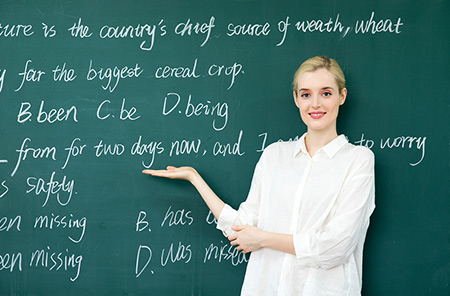 ture is the country's chief source of weath, wheat
y far the biggest cereal crop.
B.been C.be D.being
from for two days now, and I to worry
s safely.
een missing B. has
een missing D. Was missed